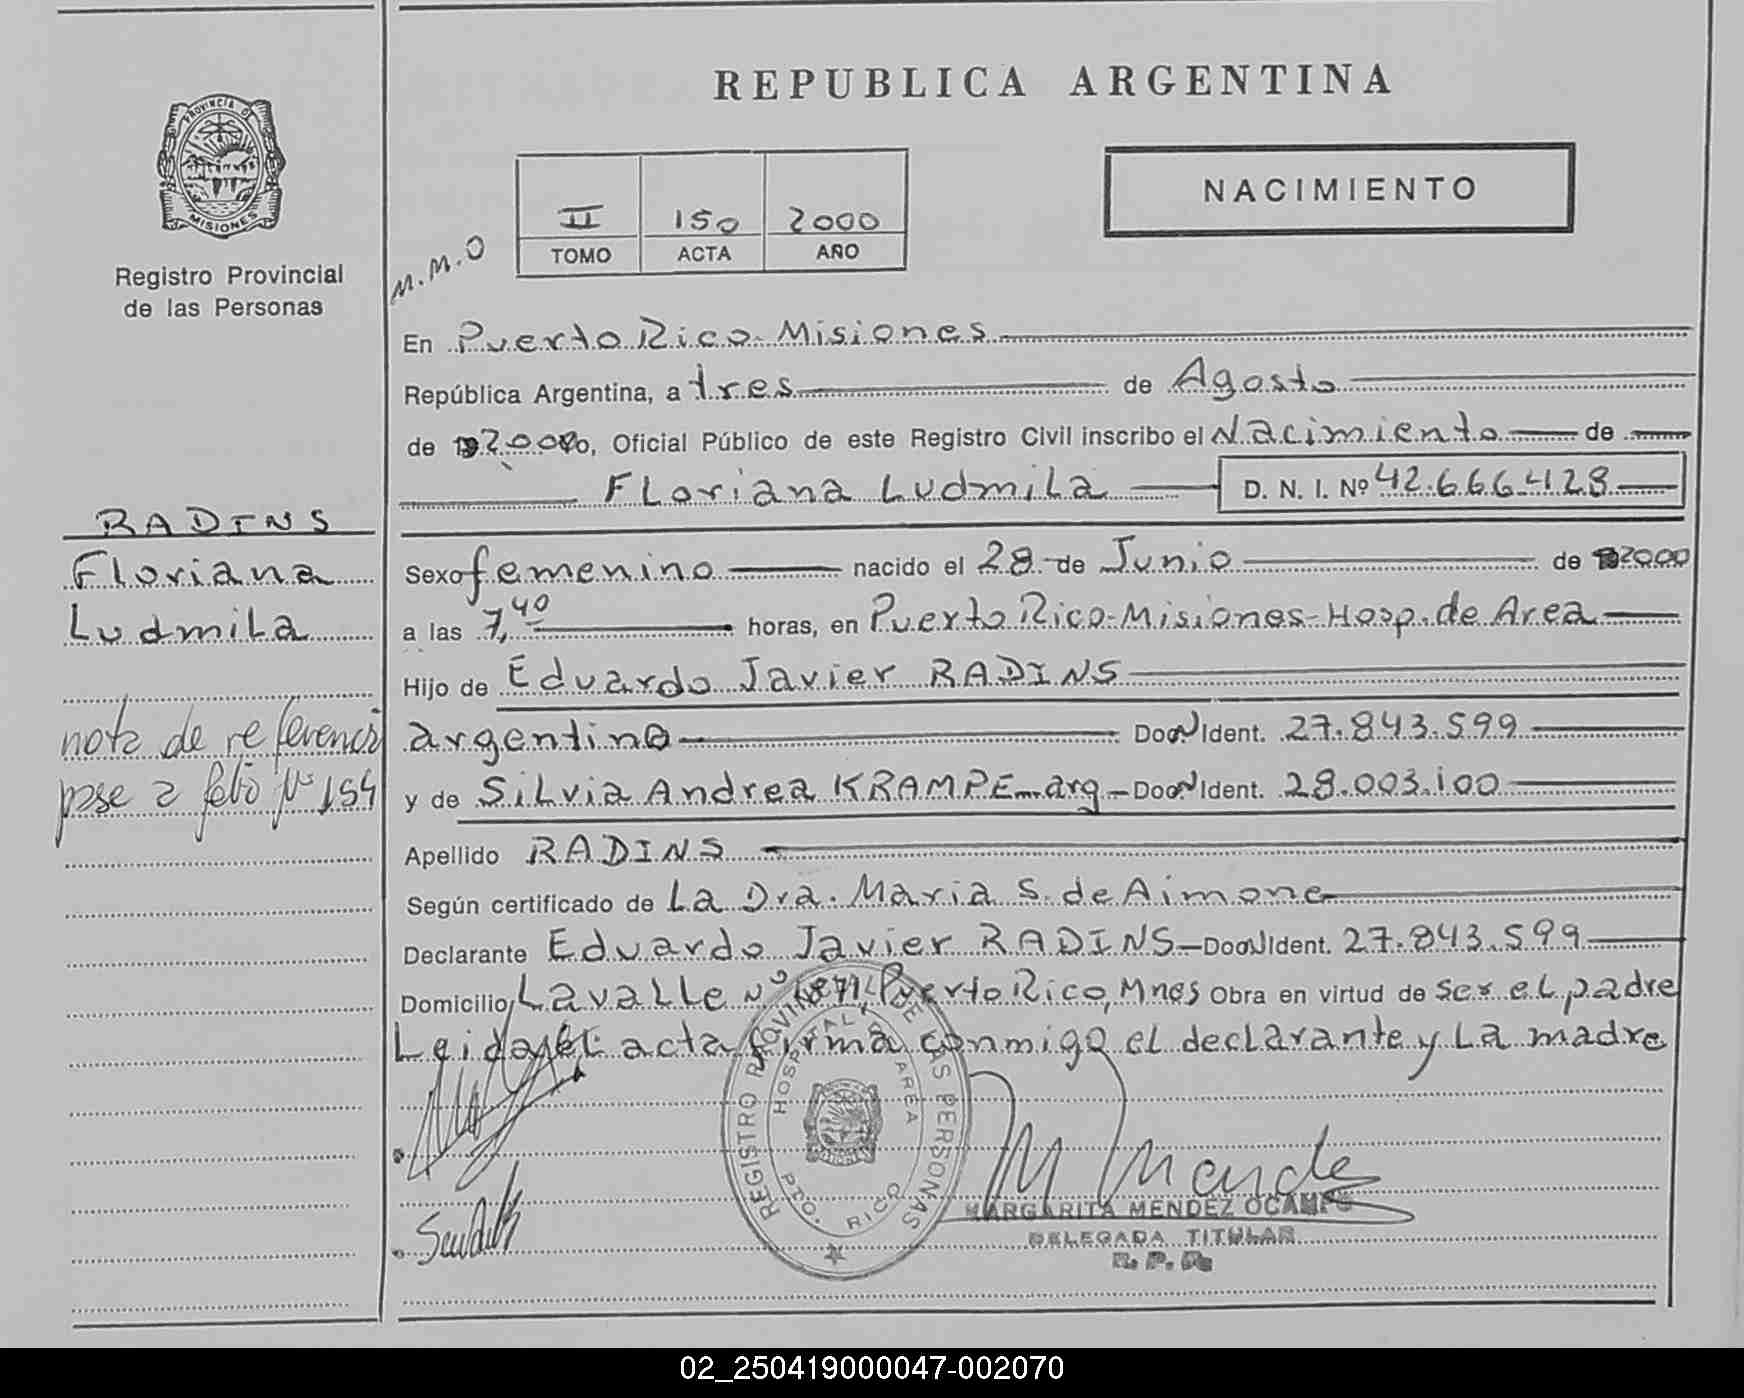 REPUBLICA ARGENTINA
PROVINCIA DE
MISIONES
Registro Provincial
de las Personas
NACIMIENTO
II 150 2000
TOMO ACTA AÑO
M.M.O
En Puerto Rico-Misiones
República Argentina, a tres de Agosto
de 2000, Oficial Público de este Registro Civil inscribo el Nacimiento de
Floriana Ludmila D. N. I. Nº 42.666.428
RADINS
Floriana
Ludmila
nota de referencia
pase a folio Nº 154
Sexo femenino nacido el 28 de Junio de 2000
a las 7,40 horas, en Puerto Rico-Misiones-Hosp. de Area
Hijo de Eduardo Javier RADINS
argentino Doc. N Ident. 27.843.599
y de Silvia Andrea KRAMPE-arg-Doc. N Ident. 28.003.100
Apellido RADINS
Según certificado de La Dra. Maria S. de Aimone
Declarante Eduardo Javier RADINS-Doc. N Ident. 27.843.599
Domicilio, Lavalle Nº Puerto Rico, Mnes Obra en virtud de ser el padre
Leida el acta firma conmigo el declarante y La madre
REGISTRO PROVINCIAL DE LAS PERSONAS
HOSPITAL DE AREA
PTO. RICO
M Mendez
MARGARITA MENDEZ OCAMPO
DELEGADA TITULAR
R. P. P.
02_250419000047-002070